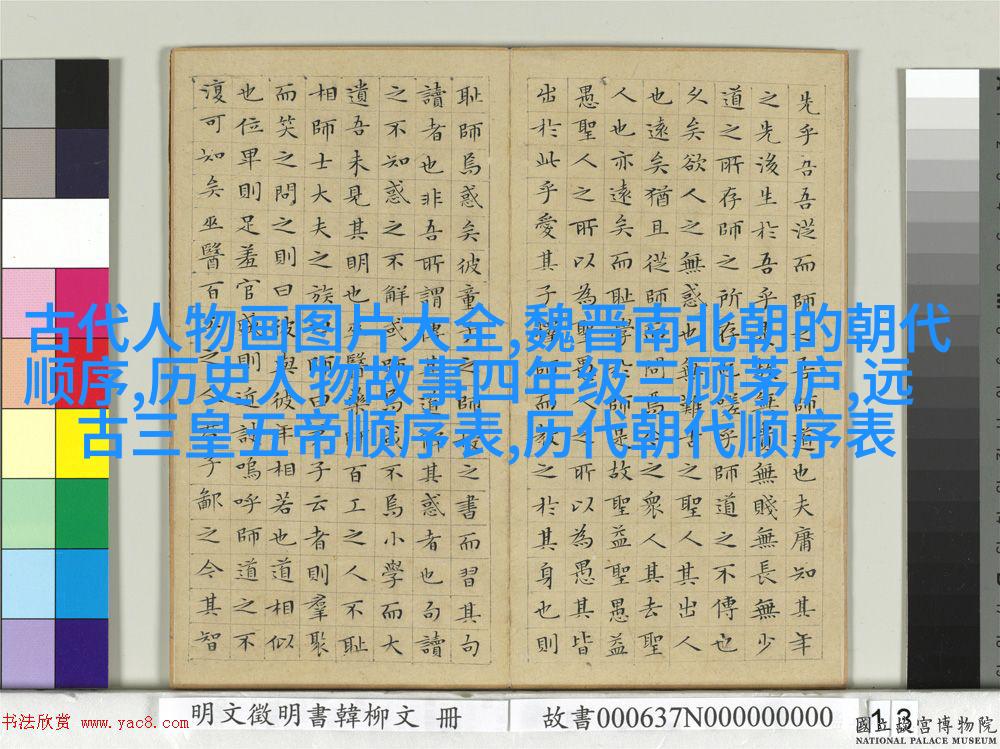 先乎吾吾從而師之吾師道也夫庸知其年
之先後生於吾乎是故無貴無賤無長無少
道之所存師之所存也嗟乎師道之不傳也
久矣欲人之無惑也難矣古之聖人其出人
也遠矣猶且從師而問焉今之衆人其去聖
人也亦遠矣而恥學於師是故聖益聖愚益
愚聖人之所以為聖愚人之所以為愚其皆
出於此乎愛其子擇師而教之於其身也則
恥師焉惑矣彼童子之師授之書而習其句
讀者也非吾所謂傳其道解其惑者也句讀
之不知惑之不解或師焉或不焉小學而大
遺吾未見其明也巫醫樂師百工之人不恥
相師士大夫之族曰師曰弟子云者則羣聚
而笑之問之則曰彼與彼年相若也道相似
也位卑則足羞官盛則近諛嗚呼師道之不
復可知矣巫醫百工之人君子鄙之今其智
古代人物画图片大全,魏晋南北朝的朝代
顺序,历史人物故事四年级三顾茅庐,远
古三皇五帝顺序表,历代朝代顺序表
明文徵明書韓柳文 冊
故書000637N000000000
13
书法欣赏 www.yac8.com
國立故宮博物院
NATIONAL PALACE MUSEUM